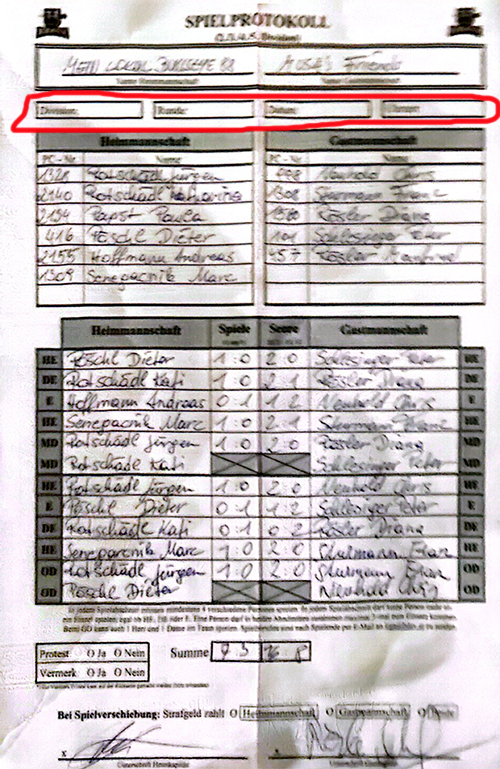 SPIELPROTOKOLL
(2./3./4./5. Division)
MEIN LOKAL BULLSEYE 82 MUSE'S Friends
Name Heimmannschaft Name Gastmannschaft
Division: Runde: Datum:
Heimmannschaft Gastmannschaft
PC - Nr. Name PC - Nr. Name
1321 Rotschädl Jürgen Neuhold Chris
2140 Rotschädl Katharina 1308 Sturmann Franz
2194 Papst Paula Rössler Diana
416 Pöschl Dieter Schlesinger Peter
2155 Hoffmann Andreas 457 Rössler Manfred
1309 Senepacnik Marc
Heimmannschaft Spiele Score Gastmannschaft
HE Pöschl Dieter 1:0 2:0 Schlesinger Peter HE
DE Rotschädl Kati 1:0 2:1 Rössler Diana DE
E Hoffmann Andreas 0:1 1:2 Neuhold Chris E
HE Senepacnik Marc 1:0 2:1 Sturmann Franz HE
MD Rotschädl Jürgen 1:0 2:0 Rössler Diana MD
MD Rotschädl Kati Schlesinger Peter MD
HE Rotschädl Jürgen 1:0 2:0 Neuhold Chris HE
E Pöschl Dieter 0:1 1:2 Schlesinger Peter E
DE Rotschädl Kati 0:1 0:2 Rösler Diana DE
HE Seneparcnik Marc 1:0 2:0 Sturmann Franz HE
OD Rotschädl Jürgen 1:0 2:0 Sturmann Franz OD
OD Pöschl Dieter Neuhold Chris OD
In jedem Spielabschnitt müssen mindestens 4 verschiedene Personen spielen. In jedem Spielabschnitt darf keine Person mehr als
ein Einzel spielen; egal ob HE, DE oder E. Eine Person darf in beiden Abschnitten zusammen maximal 3-mal zum Einsatz kommen.
Beim OD kann auch 1 Herr und 1 Dame im Team spielen.
Protest O Ja O Nein Summe 7 3 16 8
Vermerk O Ja O Nein
Bei Spielverschiebung: Strafgeld zahlt O Heimmannschaft O Gastmannschaft O Beide
x x
Unterschrift Heimkapitän Unterschrift Gastkapitän